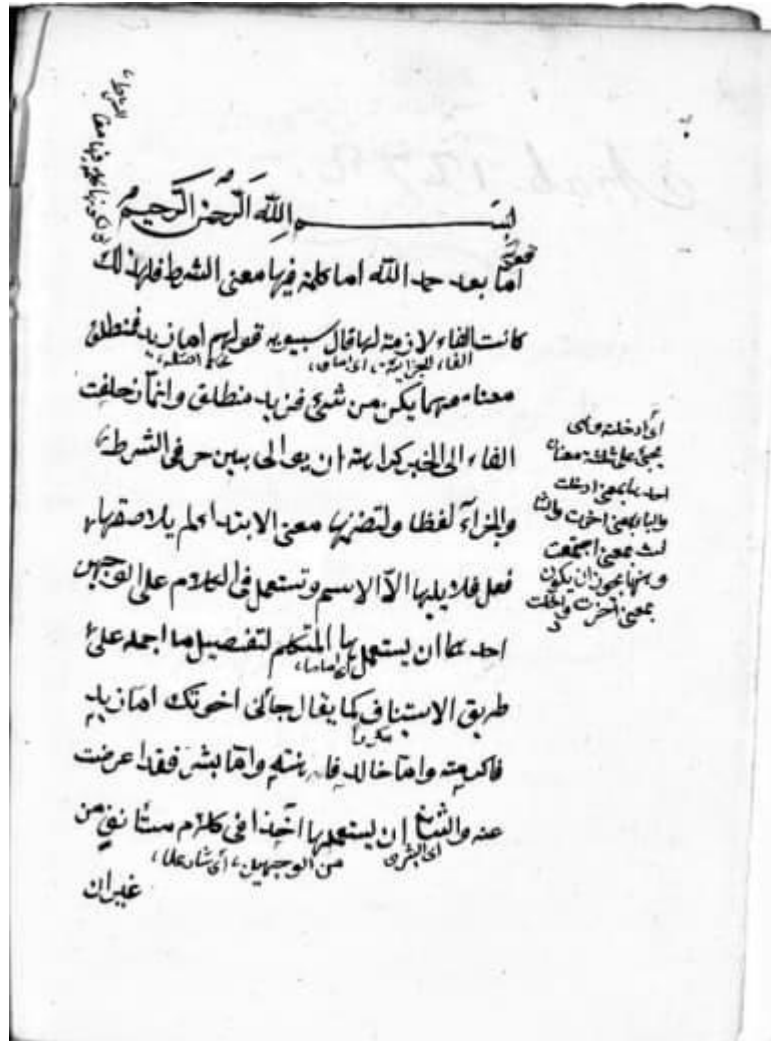 بسم الله الرحمن الرحيم
اما بعد حمد الله اما كلمة فيها معنى الشرط فلهذا لك
كانت الفاء لازمة لها قال سيبويه قولهم اما زيد فمنطلق
معناه مهما يكن من شئ فزيد منطلق وانما زحلفت
الفاء الى الخبر كراهة ان يوالى بين حرفى الشرط
والجزاء لفظا ولتضمنها معنى الابتداء لم يلاصقها
فعل فلا يليها الا الاسم وتستعمل فى الكلام على الوجهين
احدهما ان يستعملها المتكلم لتفصيل ما اجمله على
طريق الاستيناف كما يقال جائنى اخوتك اما زيد
فاكرمته واما خالد فاهنته واما بشر فقد اعرضت
عنه والثانى ان يستعملها آخذا فى كلام مستأنف من
من الوجهين
غير ان
اى ادخلته
يجئ على ثلثة معان
احدها بمعنى ادخلت
والثانى بمعنى اخرت والثا
لث بمعنى اجتمعت
وههنا يجوز ان يكون
بمعنى اخرت وادخلت